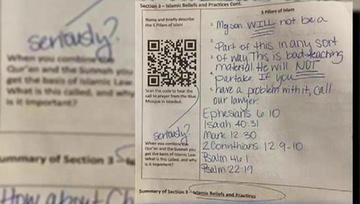 seriously?
When you combine the
Qur'en and the Sunnah you
get the basis of Islamic Law
What is this called, and why
is it important?
ummary of Section 3
How about Ch
Section 3 – Islamic Beliefs and Practices Cont.
Name and briefly describe
the 5 Pillars of Islam
Scan the code to hear the
call to prayer from the Blue
Mosque in Istanbul.
seriously?
When you combine the
Qur'en and the Sunnah you
get the basis of Islamic Law.
What is this called, and why
is it important?
5 Pillars of Islam
"My son WILL not be a
"Part of this in any sort
of way This is bad teaching
material. He will NOT
partake If you
have a problem with it, call
our lawyer.
Ephesians 6:10
Isaiah 40:31
Mark 12:30
2 Corinthians 12:9-10
Psalm 46:1
Psalm 22:19
Summary of Section 3 - Islamic Beliefs and Practices